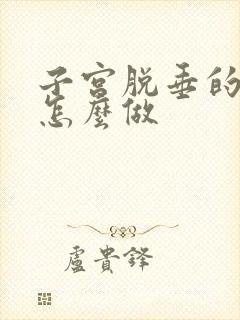 子宮脱垂的
怎麼做
盧貴鋒